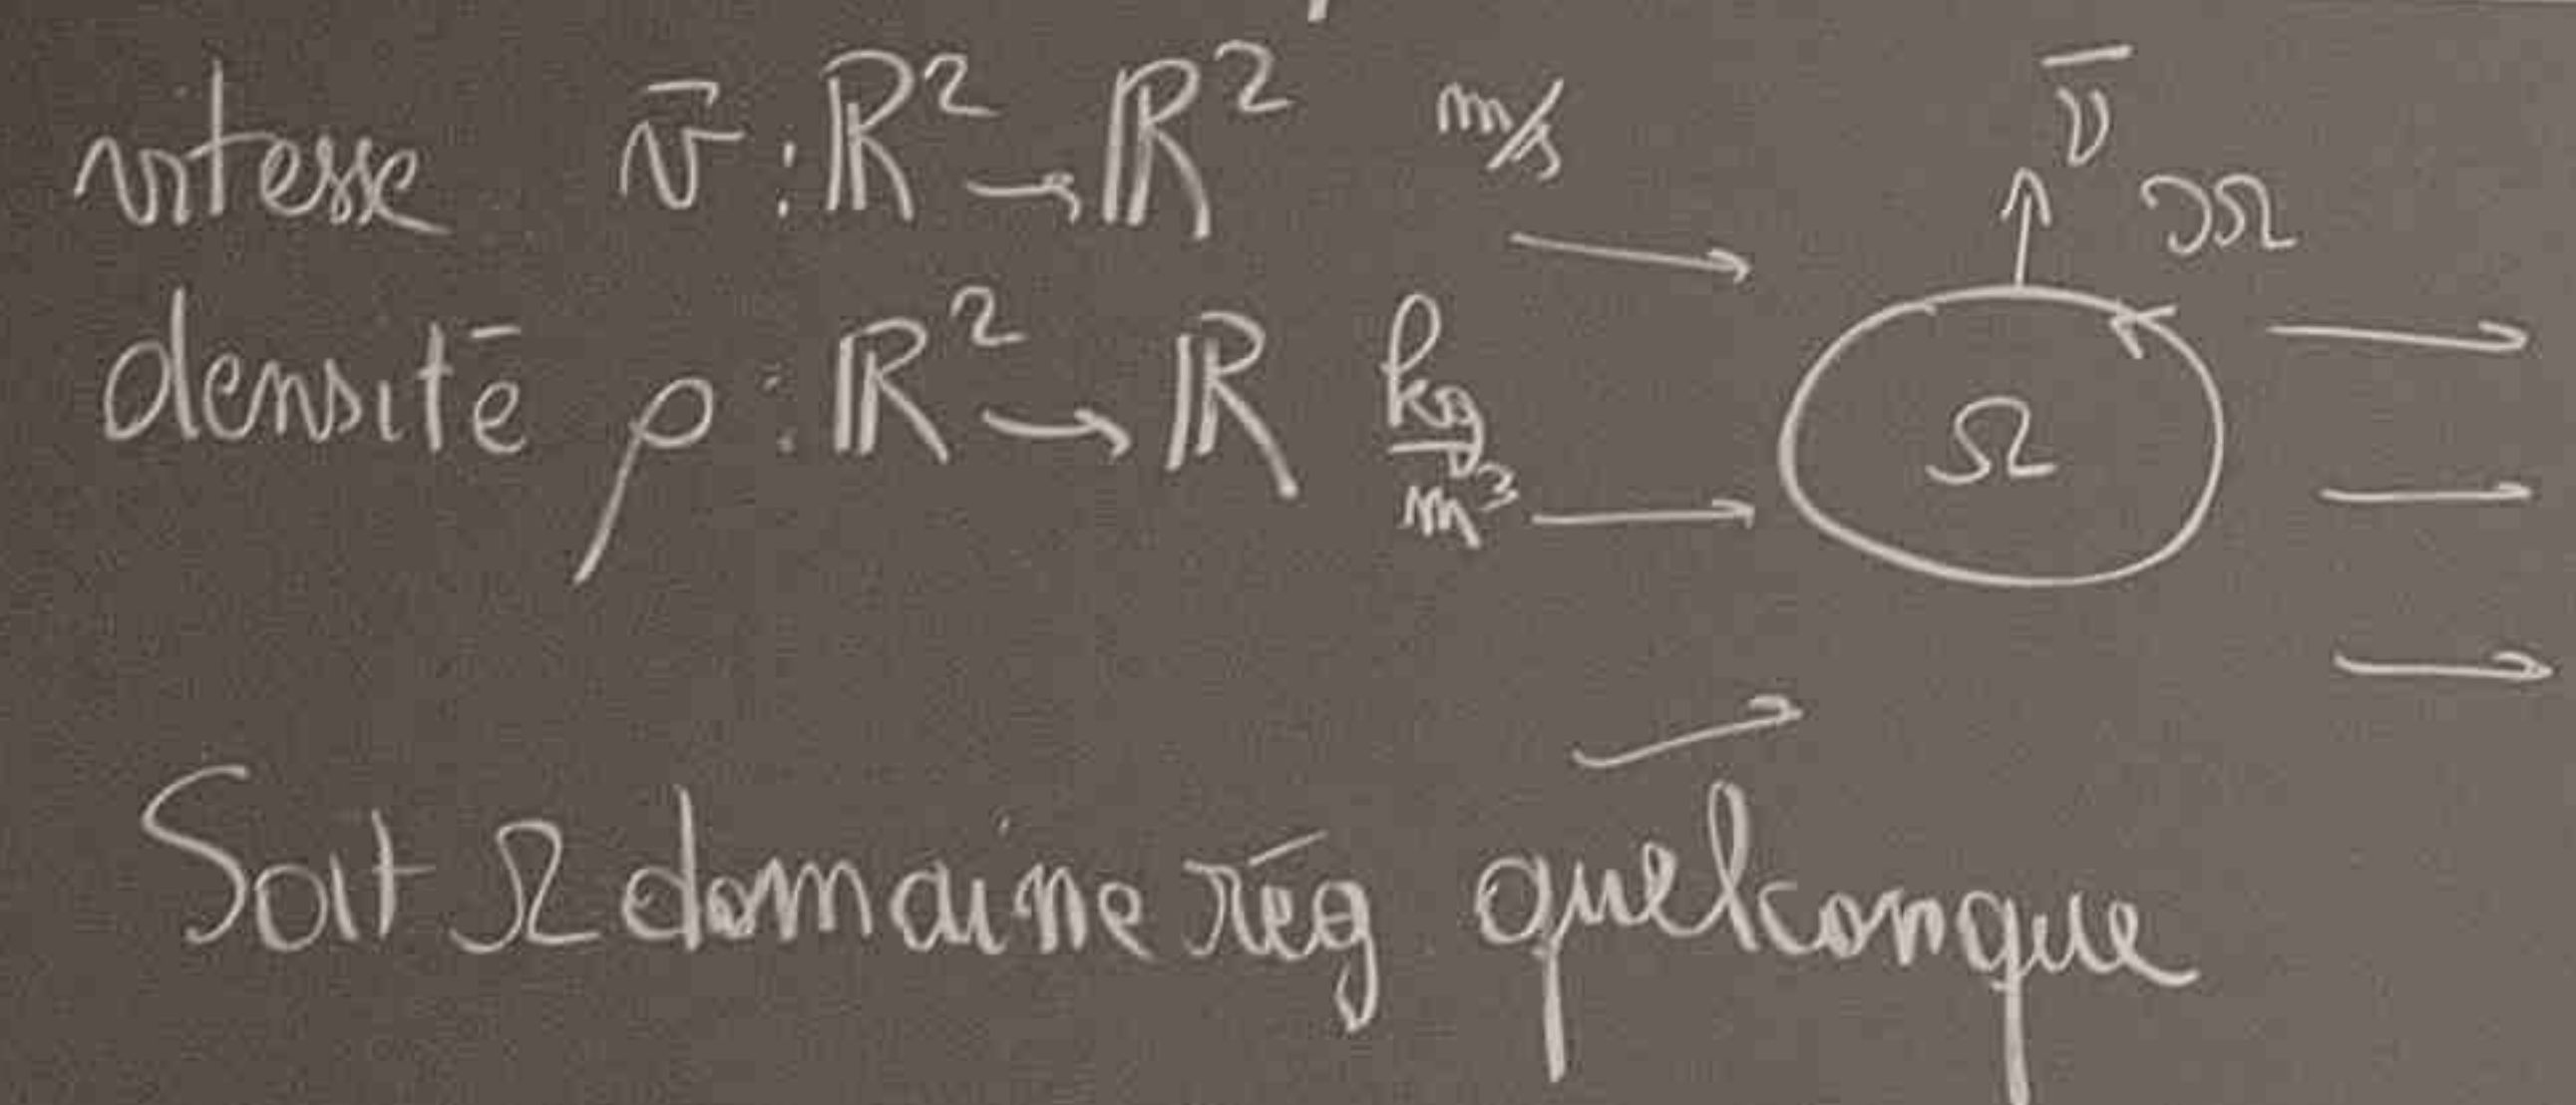 vitesse v̄ : ℝ² → ℝ² m/s
ν̄
∂Ω
densité ρ : ℝ² → ℝ kg/m³
Ω
Soit Ω domaine rég quelconque